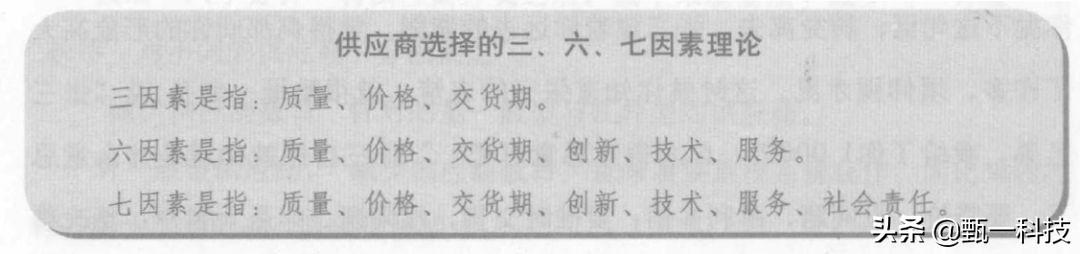 供应商选择的三、六、七因素理论
三因素是指：质量、价格、交货期。
六因素是指：质量、价格、交货期、创新、技术、服务。
七因素是指：质量、价格、交货期、创新、技术、服务、社会责任。
头条 @甄一科技